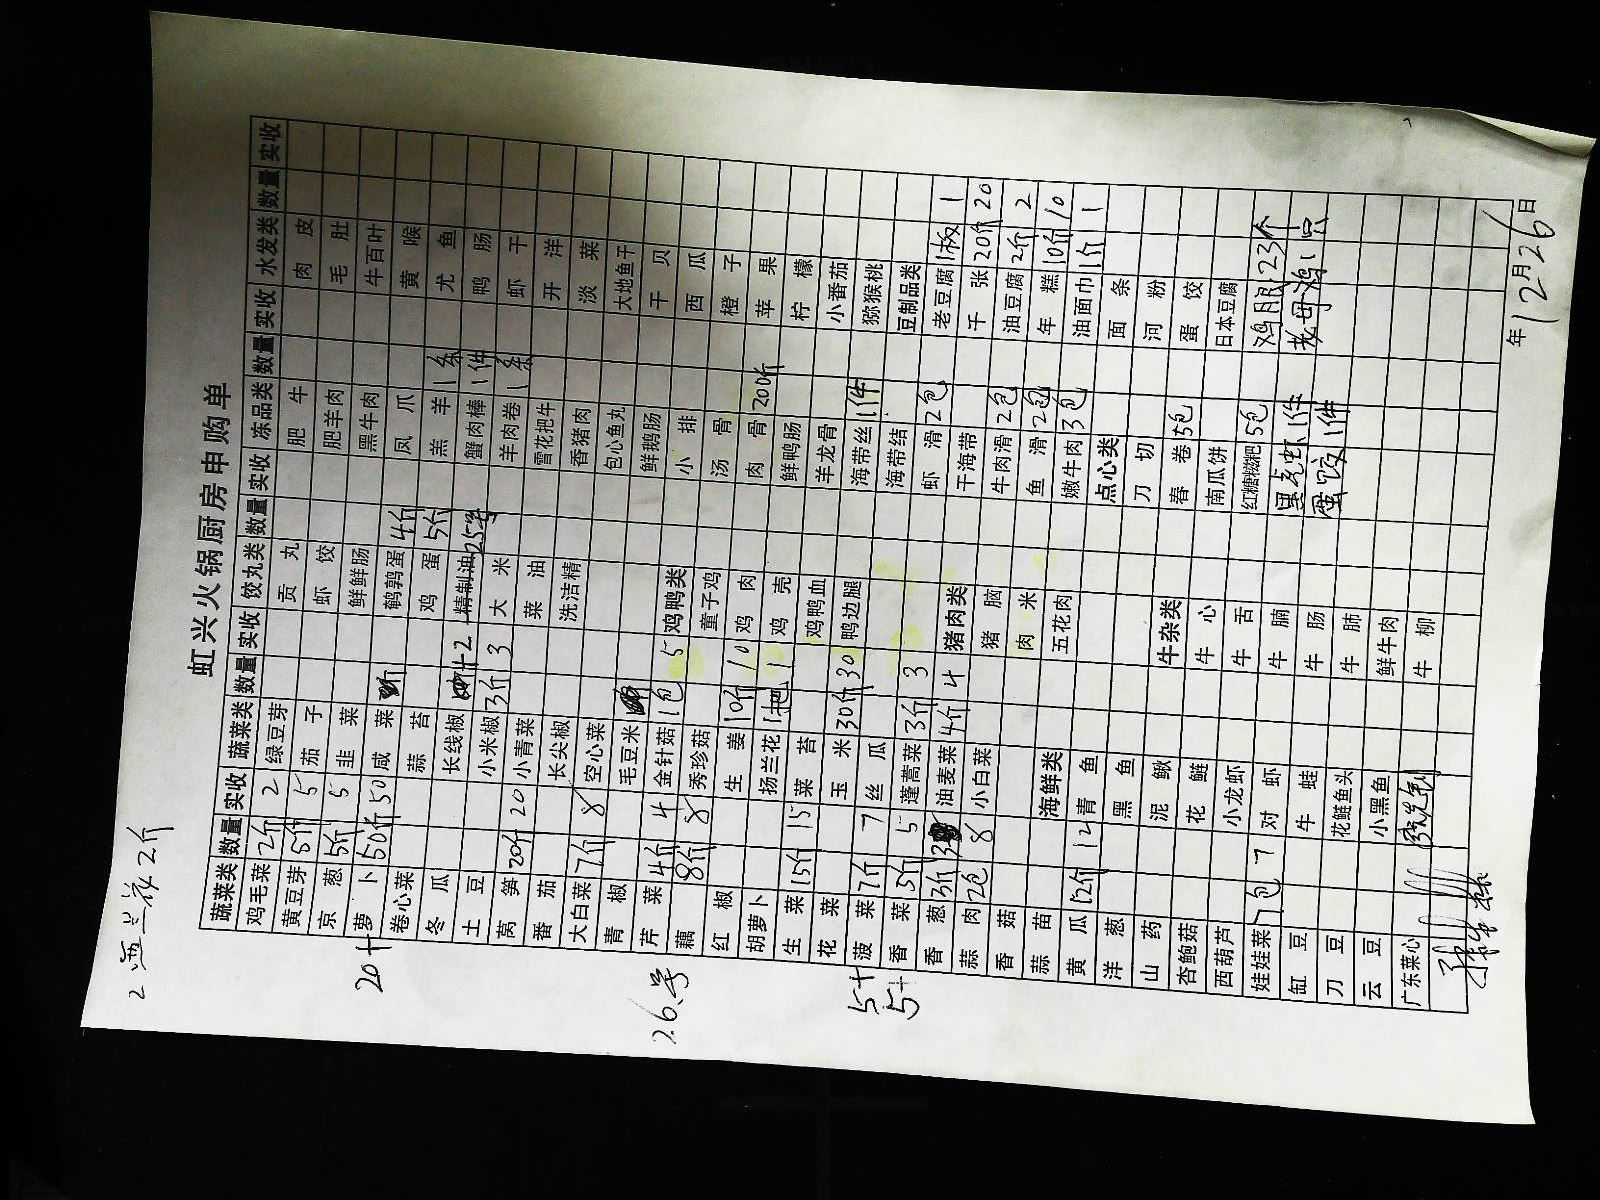 2 西兰花 2斤
虹兴火锅厨房申购单
蔬菜类 数量 实收 蔬菜类 数量 实收 饺丸类 数量 实收 冻品类 数量 实收 水发类 数量 实收
鸡毛菜 2斤 2 绿豆芽 贡丸 肥牛 肉皮
黄豆芽 5斤 5 茄子 虾饺 肥羊肉 毛肚
京葱 5斤 5 韭菜 鲜鲜肠 黑牛肉 牛百叶
20+ 萝卜 50斤 50 咸菜 鹌鹑蛋 4斤 凤爪 黄喉
卷心菜 蒜苔 鸡蛋 5斤 羔羊 1条 尤鱼
冬瓜 长线椒 +2 精制油 25号 蟹肉棒 1件 鸭肠
土豆 小米椒 3斤 3 大米 羊肉卷 1条 虾干
莴笋 20斤 20 小青菜 菜油 雪花把牛 开洋
番茄 长尖椒 洗洁精 香猪肉 淡菜
大白菜 7斤 8 空心菜 包心鱼丸 大地鱼干
青椒 毛豆米 鲜鹅肠 干贝
26号 芹菜 4斤 4 金针菇 1包 5 鸡鸭类 小排 西瓜
藕 8斤 8 秀珍菇 童子鸡 汤骨 橙子
红椒 生姜 10斤 10 鸡肉 肉骨 200斤 苹果
胡萝卜 扬兰花 1包 1 鸡壳 鲜鸭肠 柠檬
生菜 15斤 15 菜苔 鸡鸭血 羊龙骨 小番茄
花菜 玉米 30斤 30 鸭边腿 海带丝 1件 猕猴桃
5+ 菠菜 7斤 7 丝瓜 海带结 豆制品类
5+ 香菜 5斤 5 蓬蒿菜 3斤 3 虾滑 2包 老豆腐 1板 1
香葱 3斤 油麦菜 4斤 4 猪肉类 干海带 千张 20斤 20
蒜肉 2包 8 小白菜 猪脑 牛肉滑 2包 油豆腐 2斤 2
香菇 肉米 鱼滑 2包 年糕 10斤 10
蒜苗 海鲜类 五花肉 嫩牛肉 3包 油面巾 1斤 1
黄瓜 12斤 12 青鱼 点心类 面条
洋葱 黑鱼 刀切 河粉
山药 泥鳅 牛杂类 春卷 5包 蛋饺
杏鲍菇 花鲢 牛心 南瓜饼 日本豆腐
西葫芦 小龙虾 牛舌 红糖糍粑 5包 鸡脚 23个
娃娃菜 7包 7 对虾 牛腩 黑虎虾 1件 老母鸡 1只
缸豆 牛蛙 牛肠 蛋饺 1件
刀豆 花鲢鱼头 牛肺
云豆 小黑鱼 鲜牛肉
广东菜心 牛柳
年12月26日